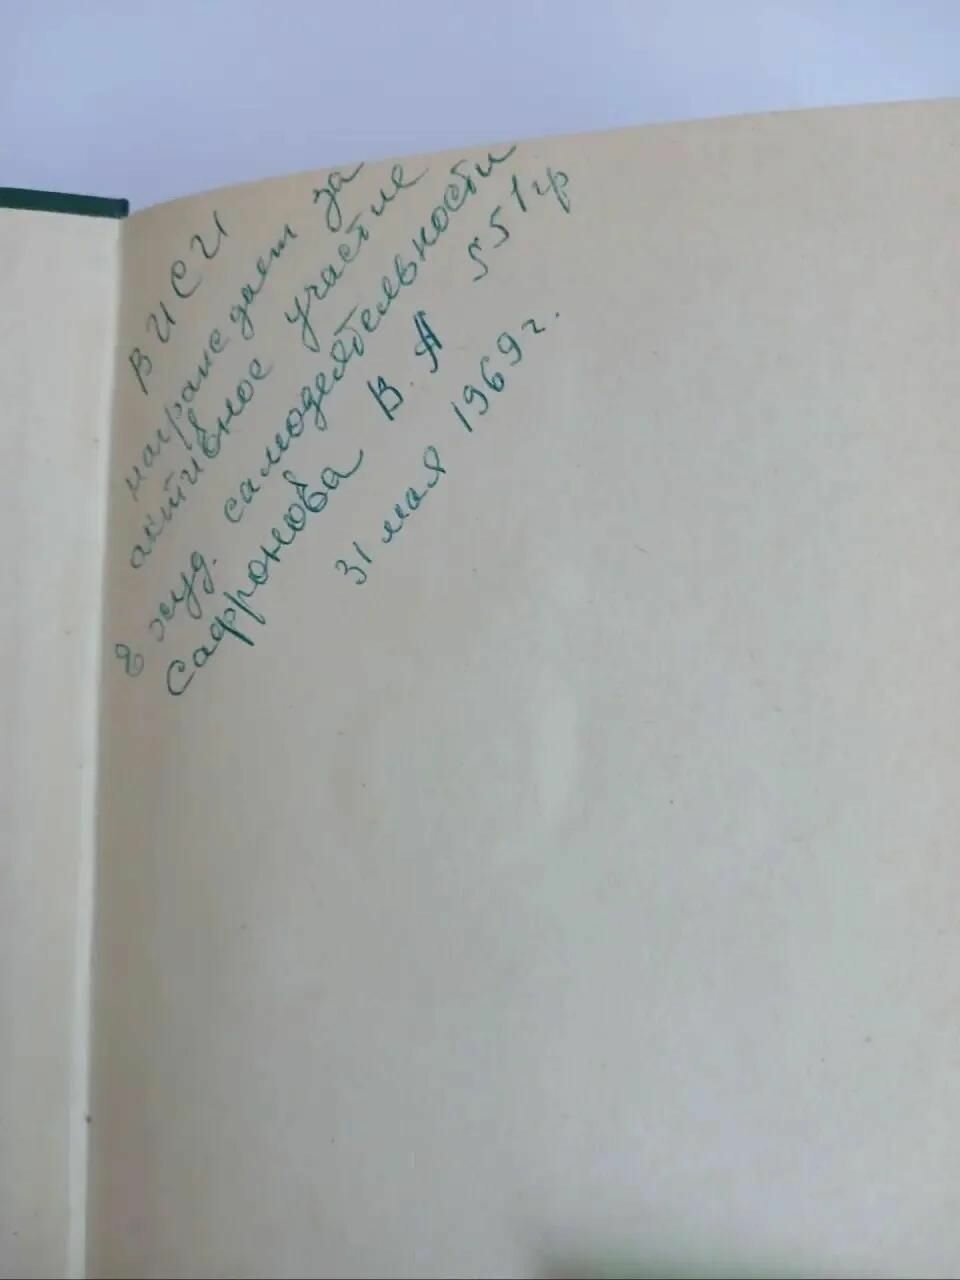 ВИСИ
награждает за
активное участие
в худ. самодеятельности
Сафронова В. А 551гр
31 мая 1969г.